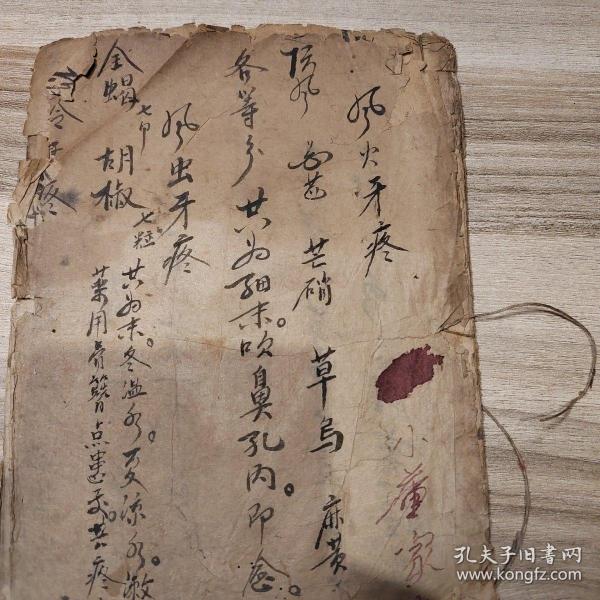 风火牙疼
防风 白芷 芒硝 草乌 麻黄
各等分 共为细末。吹鼻孔内。即愈。
风虫牙疼
全蝎 七个 胡椒 七粒 共为末。冬温水。夏凉水。敷
药用骨簪点患处。其疼
疼
小 家
孔夫子旧书网
www.kongfz.com